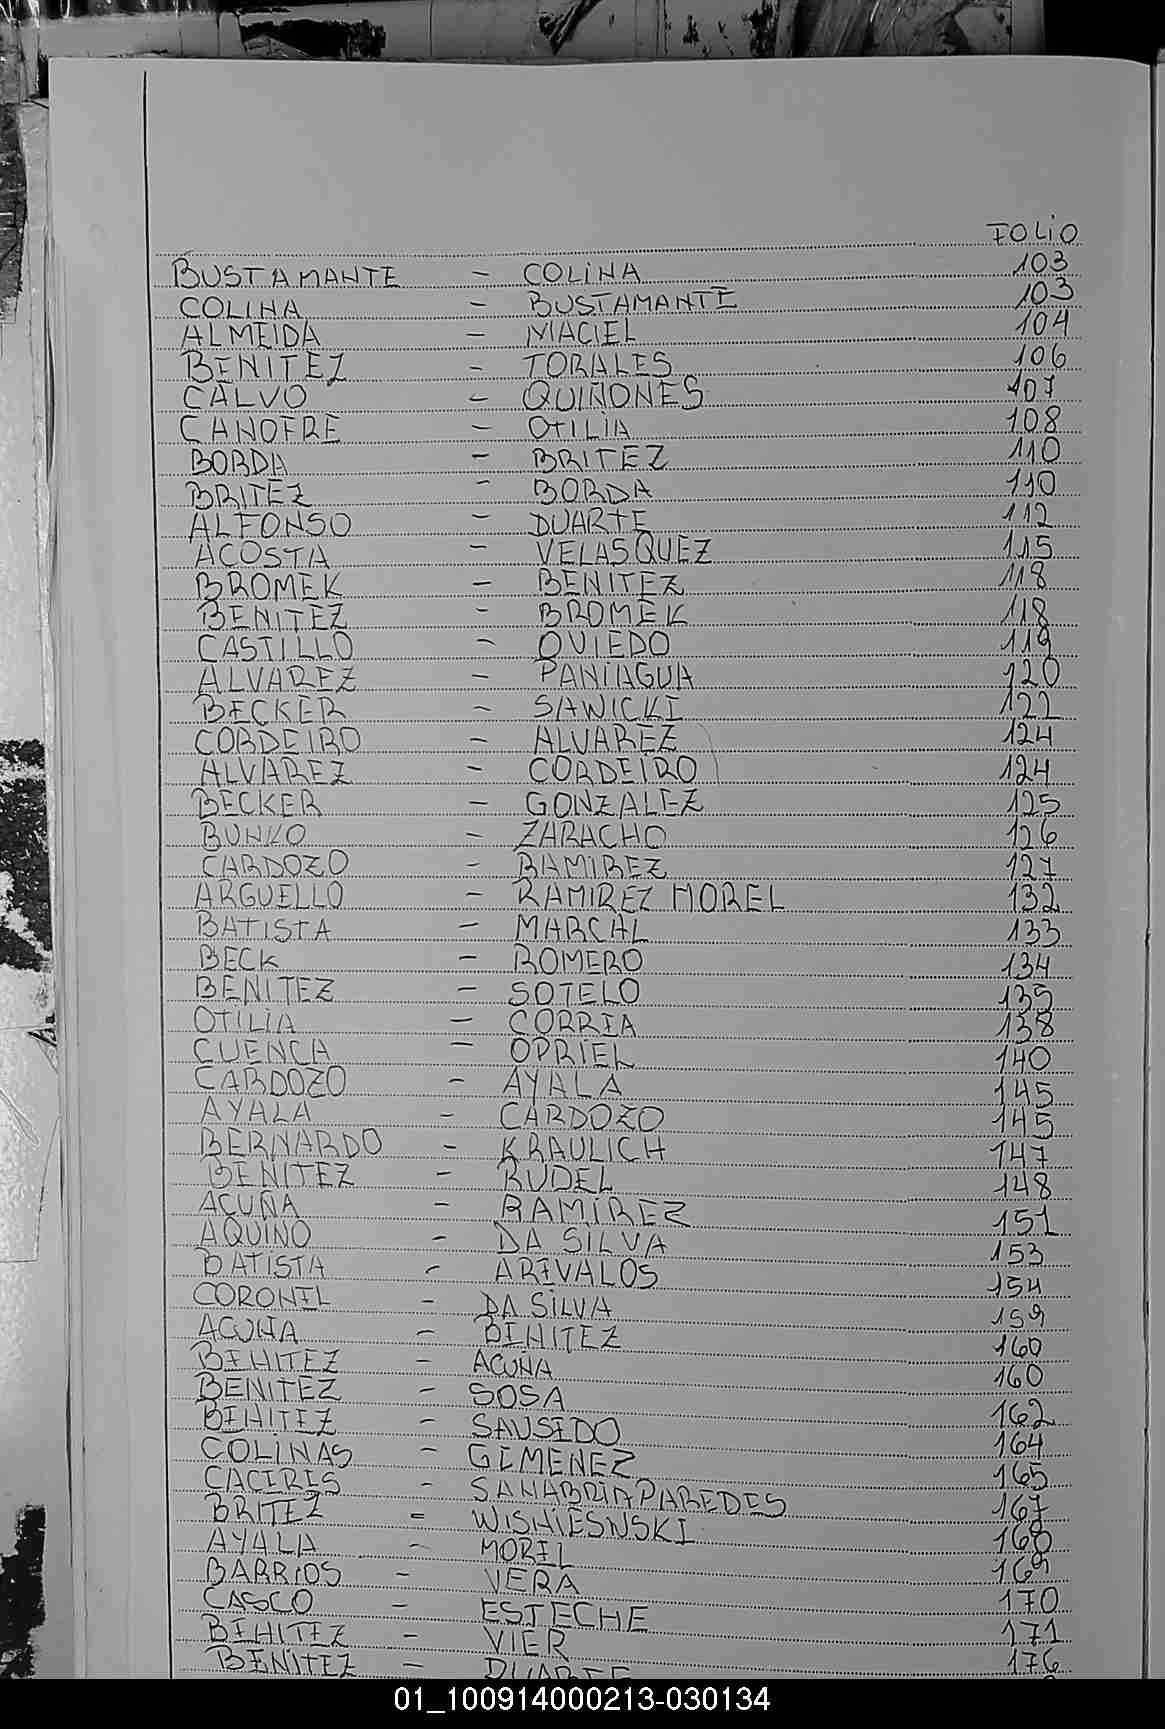 FOLIO
BUSTAMANTE - COLINA 103
COLINA - BUSTAMANTE 103
ALMEIDA - MACIEL 104
BENITEZ - TORALES 106
CALVO - QUIÑONES 107
CANOFRE - OTILIA 108
BORDA - BRITEZ 110
BRITEZ - BORDA 110
ALFONSO - DUARTE 112
ACOSTA - VELASQUEZ 115
BROMEK - BENITEZ 118
BENITEZ - BROMEK 118
CASTILLO - OVIEDO 119
ALVAREZ - PANIAGUA 120
BECKER - SAWICKI 122
CORDEIRO - ALVAREZ 124
ALVAREZ - CORDEIRO 124
BECKER - GONZALEZ 125
BUNKO - ZARACHO 126
CARDOZO - RAMIREZ 127
ARGUELLO - RAMIREZ MOREL 132
BATISTA - MARCAL 133
BECK - ROMERO 134
BENITEZ - SOTELO 135
OTILIA - CORREA 138
CUENCA - OPRIEL 140
CARDOZO - AYALA 145
AYALA - CARDOZO 145
BERNARDO - KRAULICH 147
BENITEZ - RUDEL 148
ACUÑA - RAMIREZ 151
AQUINO - DA SILVA 153
BATISTA - AREVALOS 154
CORONEL - DA SILVA 159
ACUÑA - BENITEZ 160
BENITEZ - ACUÑA 160
BENITEZ - SOSA 162
BENITEZ - SAUSEDO 164
COLINAS - GIMENEZ 165
CACERES - SANABRIA PAREDES 167
BRITEZ - WISHIESNSKI 168
AYALA - MOREL 169
BARRIOS - VERA 170
CASCO - ESTECHE 171
BENITEZ - VIER 176
BENITEZ - DUARTE
01_100914000213-030134